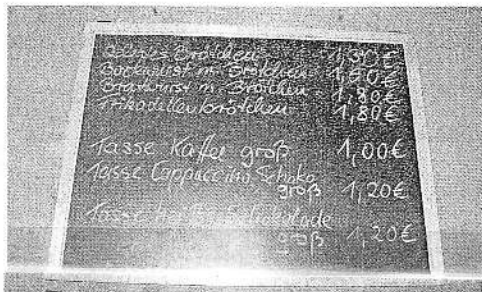 Brötchen 1,30€
Bockwurst m. Brötchen 1,60€
Bratwurst m. Brötchen 1,80€
Frikadellenbrötchen 1,80€
Tasse Kaffee groß 1,00€
Tasse Cappuccino Schoko
groß 1,20€
Tasse heiße Schokolade
groß 1,20€